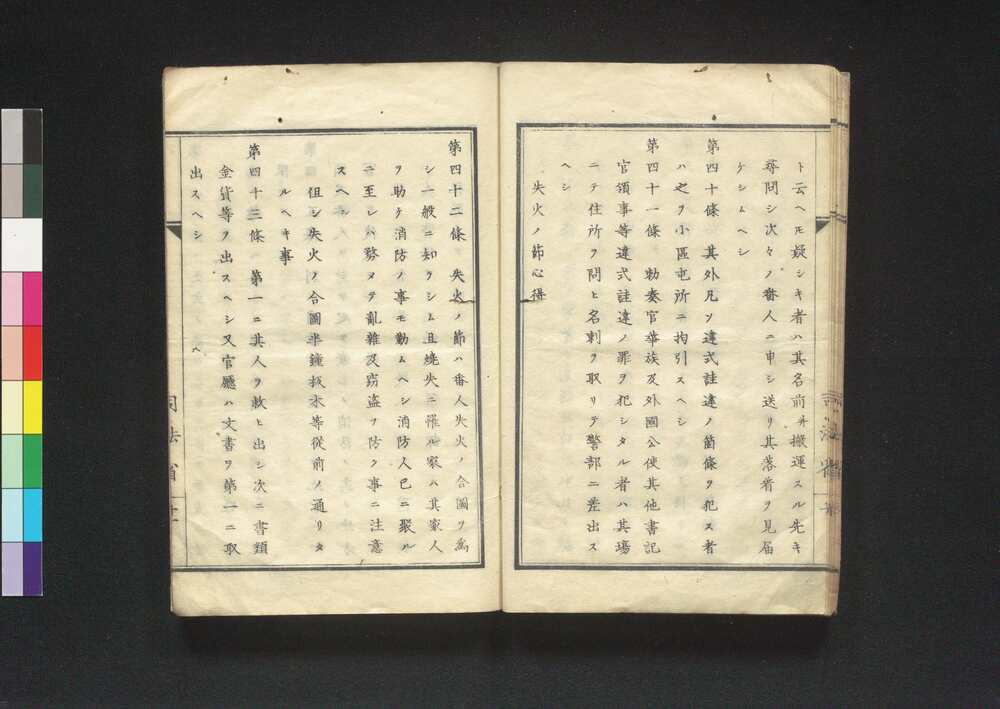 ト云ヘㇳモ疑シキ者ハ其名前并搬運スル先キ
尋問シ次々ノ番人ニ申シ送リ其落着ヲ見届
ケシムヘシ
第四十條 其外凡ソ違式詿違ノ箇條ヲ犯ス者
ハ之ヲ小區屯所ニ拘引スヘシ
第四十一條 勅奏官華族及外國公使其他書記
官領事等違式詿違ノ罪ヲ犯シタル者ハ其場
ニテ住所ヲ問ヒ名刺ヲ取リテ警部ニ差出ス
ヘシ
失火ノ節心得
第四十二條 失火ノ節ハ番人失火ノ合圖ヲ為
シ一般ニ知ラシム且燒失ニ罹ル家ハ其家人
ヲ助ケ消防ノ事モ勤ムヘシ消防人已ニ聚ル
ニ至レハ務メテ亂雜及窃盗ヲ防ク事ニ注意
スヘシ
但シ失火ノ合圖半鐘板木等從前ノ通リタ
ルヘキ事
第四十三條 第一ニ其人ヲ救ヒ出シ次ニ書類
金貨等ヲ出スヘシ又官廳ハ文書ヲ第一ニ取
出スヘシ
司法省